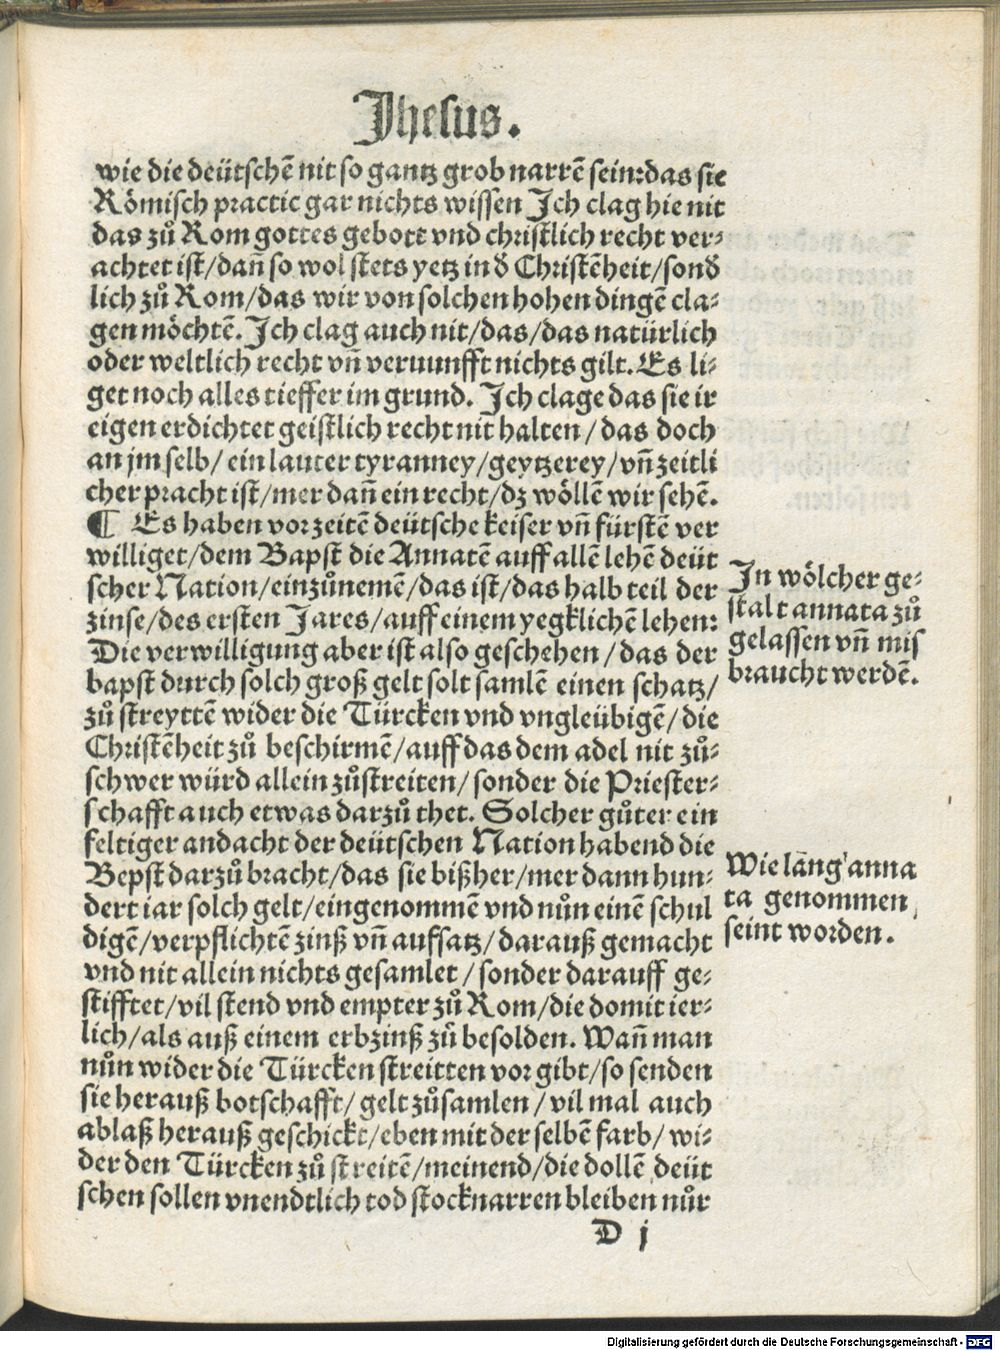 Jhesus.
wie die deütschē nit so gantz grob narrē sein:das sie
Römisch practic gar nichts wissen Jch clag hie nit
das zů Rom gottes gebott vnd christlich recht ver⸗
achtet ist/dañ so wol stets yetz in ð Christēheit/sonð
lich zů Rom/das wir von solchen hohen dingē cla⸗
gen möchtē. Jch clag auch nit/das/das natürlich
oder weltlich recht vñ veruunfft nichts gilt. Es li⸗
get noch alles tieffer im grund. Jch clage das sie ir
eigen erdichtet geistlich recht nit halten/das doch
an jm selb/ein lauter tyranney/geytzerey/vñ zeitli
cher pracht ist/mer dañ ein recht/dz wöllē wir sehē.
¶ Es haben vor zeitē deütsche keiser vñ fürstē ver
williget/dem Bapst die Annatē auff allē lehē deüt
scher Nation/einzůnemē/das ist/das halb teil der
zinse/des ersten Jares/auff einem yegklichē lehen:
Die verwilligung aber ist also geschehen/das der
bapst durch solch groß gelt solt samlē einen schatz/
zů streyttē wider die Türcken vnd vngleübigē/die
Christēheit zů beschirmē/auff das dem adel nit zů⸗
schwer würd allein zůstreiten/sonder die Priester⸗
schafft auch etwas darzů thet. Solcher gůter ein
feltiger andacht der deütschen Nation habend die
Bepst darzů bracht/das sie bißher/mer dann hun⸗
dert iar solch gelt/eingenommē vnd nůn einē schul
digē/verpflichtē zinß vñ aufsatz/darauß gemacht
vnd nit allein nichts gesamlet/sonder darauff ge⸗
stifftet/vil stend vnd empter zů Rom/die domit ier⸗
lich/als auß einem erbzinß zů besolden. Wañ man
nůn wider die Türcken streitten vor gibt/so senden
sie herauß botschafft/gelt zůsamlen/vil mal auch
ablaß herauß geschickt/eben mit der selbē farb/wi⸗
der den Türcken zů streitē/meinend/die dollē deüt
schen sollen vnendtlich tod stocknarren bleiben nůr
D j
Jn wölcher ge⸗
stalt annata zů
gelassen vñ mis
braucht werdē.
Wie lāng anna
ta genommen
seint worden.
Digitalisierung gefördert durch die Deutsche Forschungsgemeinschaft - DFG